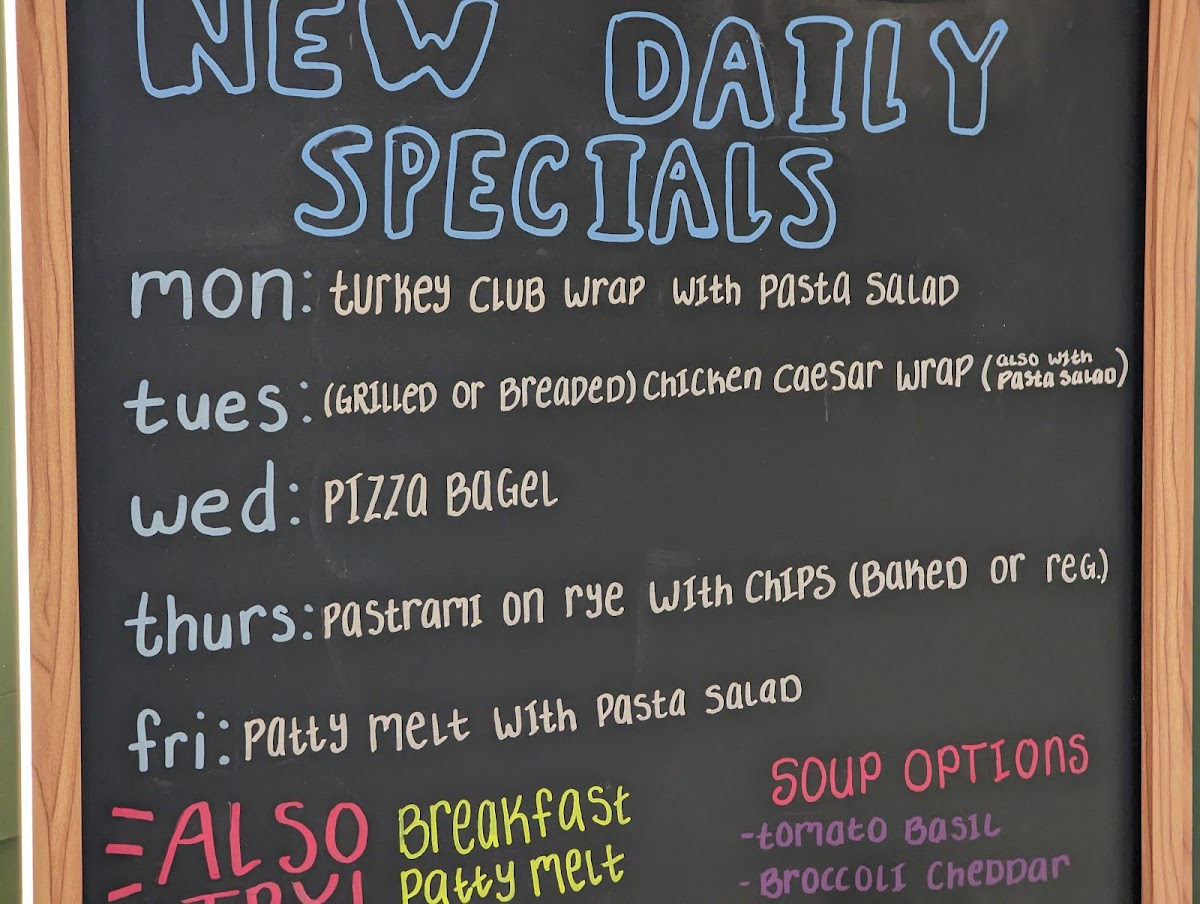 NEW DAILY
SPECIALS
mon: turkey CLUB wrap with pasta salad
tues: (GRILLED or BREADED) chicken caesar wrap (also with pasta salad)
wed: PIZZA BAGEL
thurs: pastrami on rye with chips (BAKED or reg.)
fri: patty melt with pasta salad
SOUP OPTIONS
-tomato BASIL
-BROCCOLI CHEDDAR
ALSO
TRY!
Breakfast
patty melt